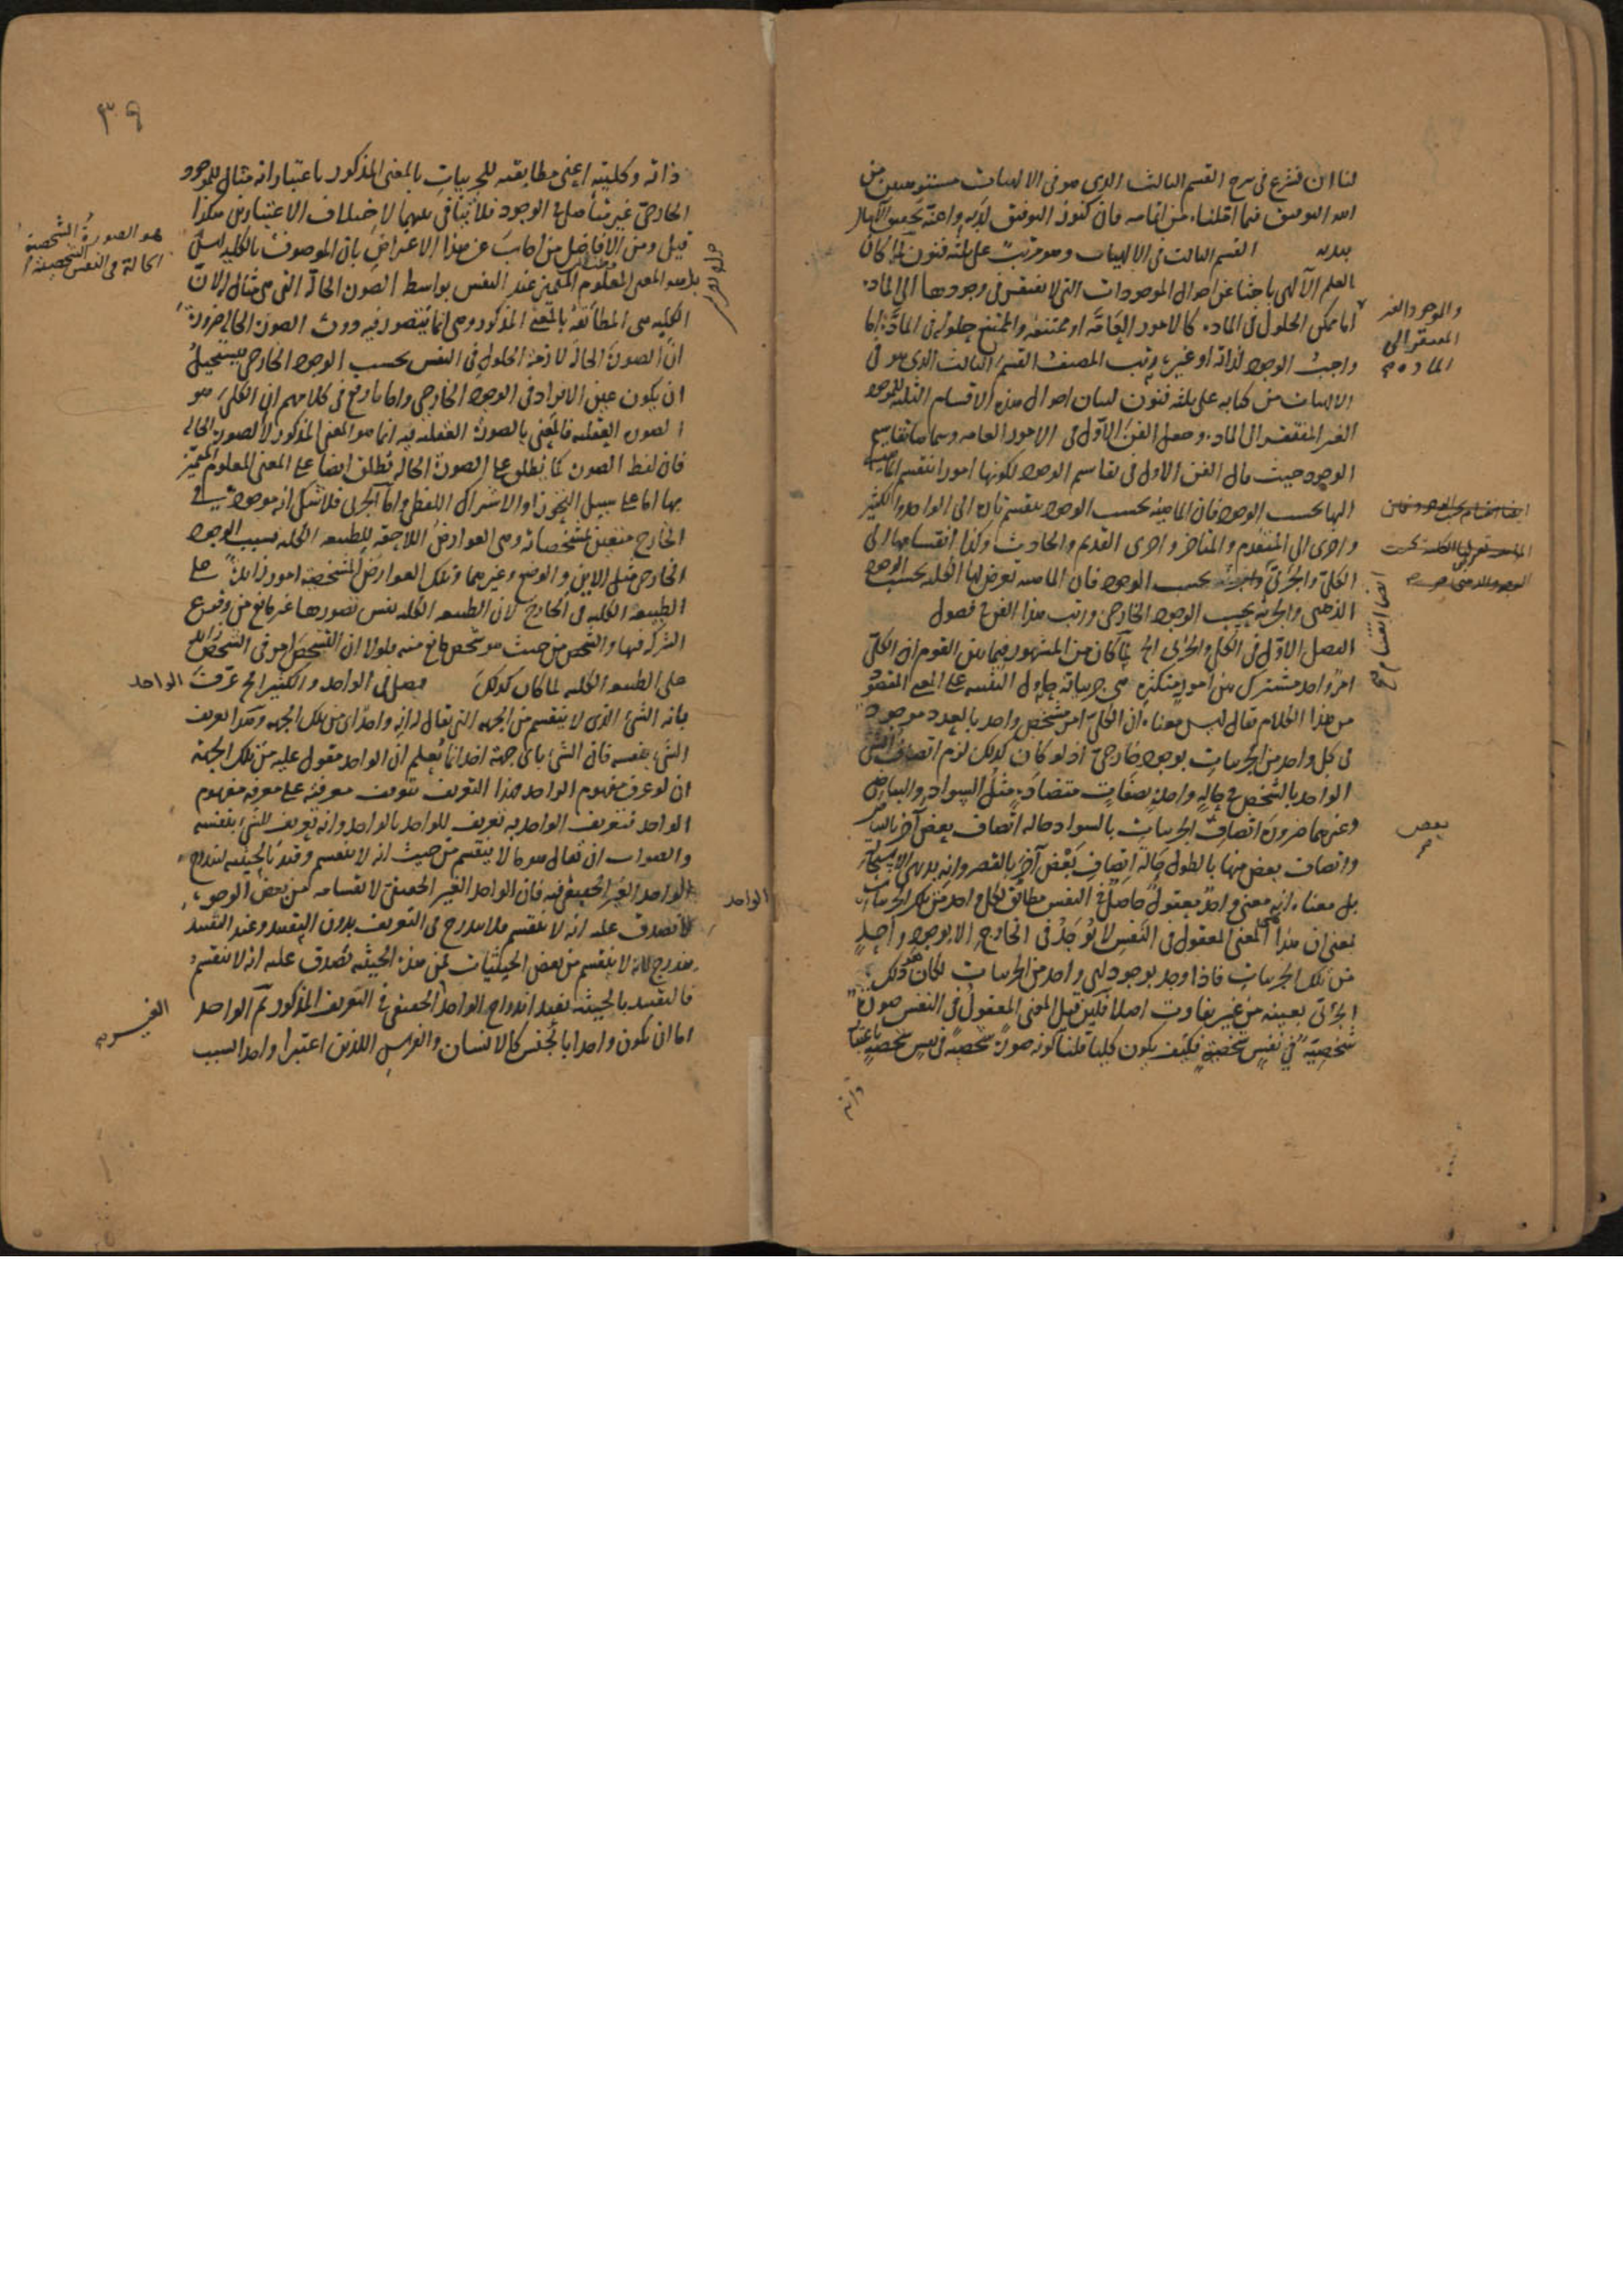 لنا ان نشرع فى شرح القسم الثالث الذى هو فى الالهيات مستوهبين من
الله التوفيق فيما املنا من اتمامه فان كنوز التوفيق لديه وا تحقيق الآمال
بيديه القسم الثالث فى الالهيات وهو مرتب على ثلثة فنون لما كان
العلم الآلهى باحثا عن احوال الموجودات التى لا تفتقر فى وجودها الى المادة
اما ممكن الحلول فى المادة كالامور العامة او ممتنعه والممتنع حلوله فى المادة اما
واجب الوجود لذاته او غيره رتب المصنف القسم الثالث الذى هو فى
الالهيات من كتابه على ثلثة فنون لبيان احوال هذه الاقسام الثلثة للموجود
الغير المفتقر الى المادة وجعل الفن الاول فى الامور العامة وسماها تقاسيم
الوجود حيث قال الفن الاول فى تقاسيم الوجود لكونها امورا تنقسم الماهية
اليها بحسب الوجود فان الماهية بحسب الوجود تنقسم تارة الى الواحد والكثير
واخرى الى المتقدم والمتاخر واخرى القديم والحادث وكذا انقسامها الى
الكلى والجزئى بحسب الوجود فان الماهية تعرض لها الكلية بحسب الوجود
الذهنى والجزئية بحسب الوجود الخارجى ورتب هذا الفن على فصول
الفصل الاول فى الكلى والجزئى الخ لما كان من المشهور فيما بين القوم ان الكلى
امر واحد مشترك بين امور متكثرة هى جزئياته حاول التنبيه على المعنى المقصود
من هذا الكلام فقال ليس معناه ان الكلى امر متشخص واحد بالعدد موجود
فى كل واحد من الجزئيات بوجود خارجى اذ لو كان كذلك لزم اتصاف الشئ
الواحد بالشخص فى حالة واحدة بصفات متضادة مثل السواد والبياض
وغيرهما ضرورة اتصاف الجزئيات بالسواد حالة اتصاف بعض آخر بالبياض
واتصاف بعض منها بالطول حالة اتصاف بعض آخر بالقصر وانه بديهى الاستحالة
بل معناه انه معنى واحد معقول حاصل فى النفس مطابق لكل واحد من تلك الجزئيات
بمعنى ان هذا المعنى المعقول فى النفس لا يوجد فى الخارج الا بوجود واحد
من تلك الجزئيات فاذا وجد بوجود اى واحد من الجزئيات لكان هو ذلك
الجزئى بعينه من غير تفاوت اصلا لكن قيل المعنى المعقول فى النفس صورة
شخصية فى نفس شخصية فكيف يكون كليا قلنا كونه صورة شخصية فى نفس شخصية باعتبار
ذاته
والموجود الغير
المفتقر الى
المادة صح
ايضا انقسام صح
بعض
صح
٣٩
ذاته وكليته اعنى مطابقته للجزئيات بالمعنى المذكور باعتبار انه مثال للموجود
الخارجى غير متأصل فى الوجود فلا تنافى بينهما لاختلاف الاعتبارين هكذا
قيل ومن الافاضل من اجاب عن هذا الاعتراض بان الموصوف بالكلية ليس
بل هو المعنى المعلوم المتميز عند النفس بواسطة الصورة الحالة التى هى مثال له لان
الكلية هى المطابقة بالمعنى المذكور وهى انما تتصور فيه دون الصورة الحالة ضرورة
ان الصورة الحالة لازمة الحلول فى النفس بحسب الوجود الخارجى يستحيل
ان يكون عين الافراد فى الوجود الخارجى واما ما وقع فى كلامهم ان الكلى هو
الصورة العقلية فالمعنى بالصورة العقلية فيه انما هو المعنى المذكور لا الصورة الحالة
فان لفظ الصورة كما يطلق على الصورة الحالة يطلق ايضا على المعنى المعلوم المتميز
بها اما على سبيل التجوز او الاشتراك اللفظى واما الجزئى فلا شك انه موجود فى
الخارج متعين بمشخصاته وهى العوارض اللاحقة للطبيعة الكلية بسبب الوجود
الخارجى مثل الاين والوضع وغيرهما وتلك العوارض المشخصة امور زائدة على
الطبيعة الكلية فى الخارج لان الطبيعة الكلية نفس تصورها غير مانع من وقوع
الشركة فيها والشخص من حيث هو شخص مانع منه فلولا ان التشخص امر فى الشخص زايد
على الطبيعة الكلية لما كان كذلك فصل فى الواحد والكثير الخ عرف الواحد
بانه الشئ الذى لا ينقسم من الجهة التى يقال له انه واحد اى من تلك الجهة وهذا تعريف
الشئ بنفسه فان الشئ باى جهة اخذ انما يعلم ان الواحد مقول عليه من تلك الجهة
ان لو عرف مفهوم الواحد فهذا التعريف تتوقف معرفته على معرفة مفهوم
الواحد فتعريف الواحد به تعريف للواحد بالواحد وانه تعريف للشئ بنفسه
والصواب ان يقال هو ما لا ينقسم من حيث انه لا ينقسم وقيد بالحيثية ليندرج
الواحد الغير الحقيقى فيه فان الواحد الغير الحقيقى لانقسامه من بعض الوجوه
لا يصدق عليه انه لا ينقسم فلا يندرج فى التعريف بدون التقييد وعند التقييد
يندرج لانه لا ينقسم من بعض الحيثيات فمن هذه الحيثية يصدق عليه انه لا ينقسم
فالتقييد بالحيثية يفيد اندراج الواحد الحقيقى فى التعريف المذكور ثم الواحد
اما ان يكون واحدا بالجنس كالانسان والفرس اللذين اعتبرا واحدا بسبب
هو الصورة الشخصية
الحالة فى النفس الشخصية
الواحد
الغير صح